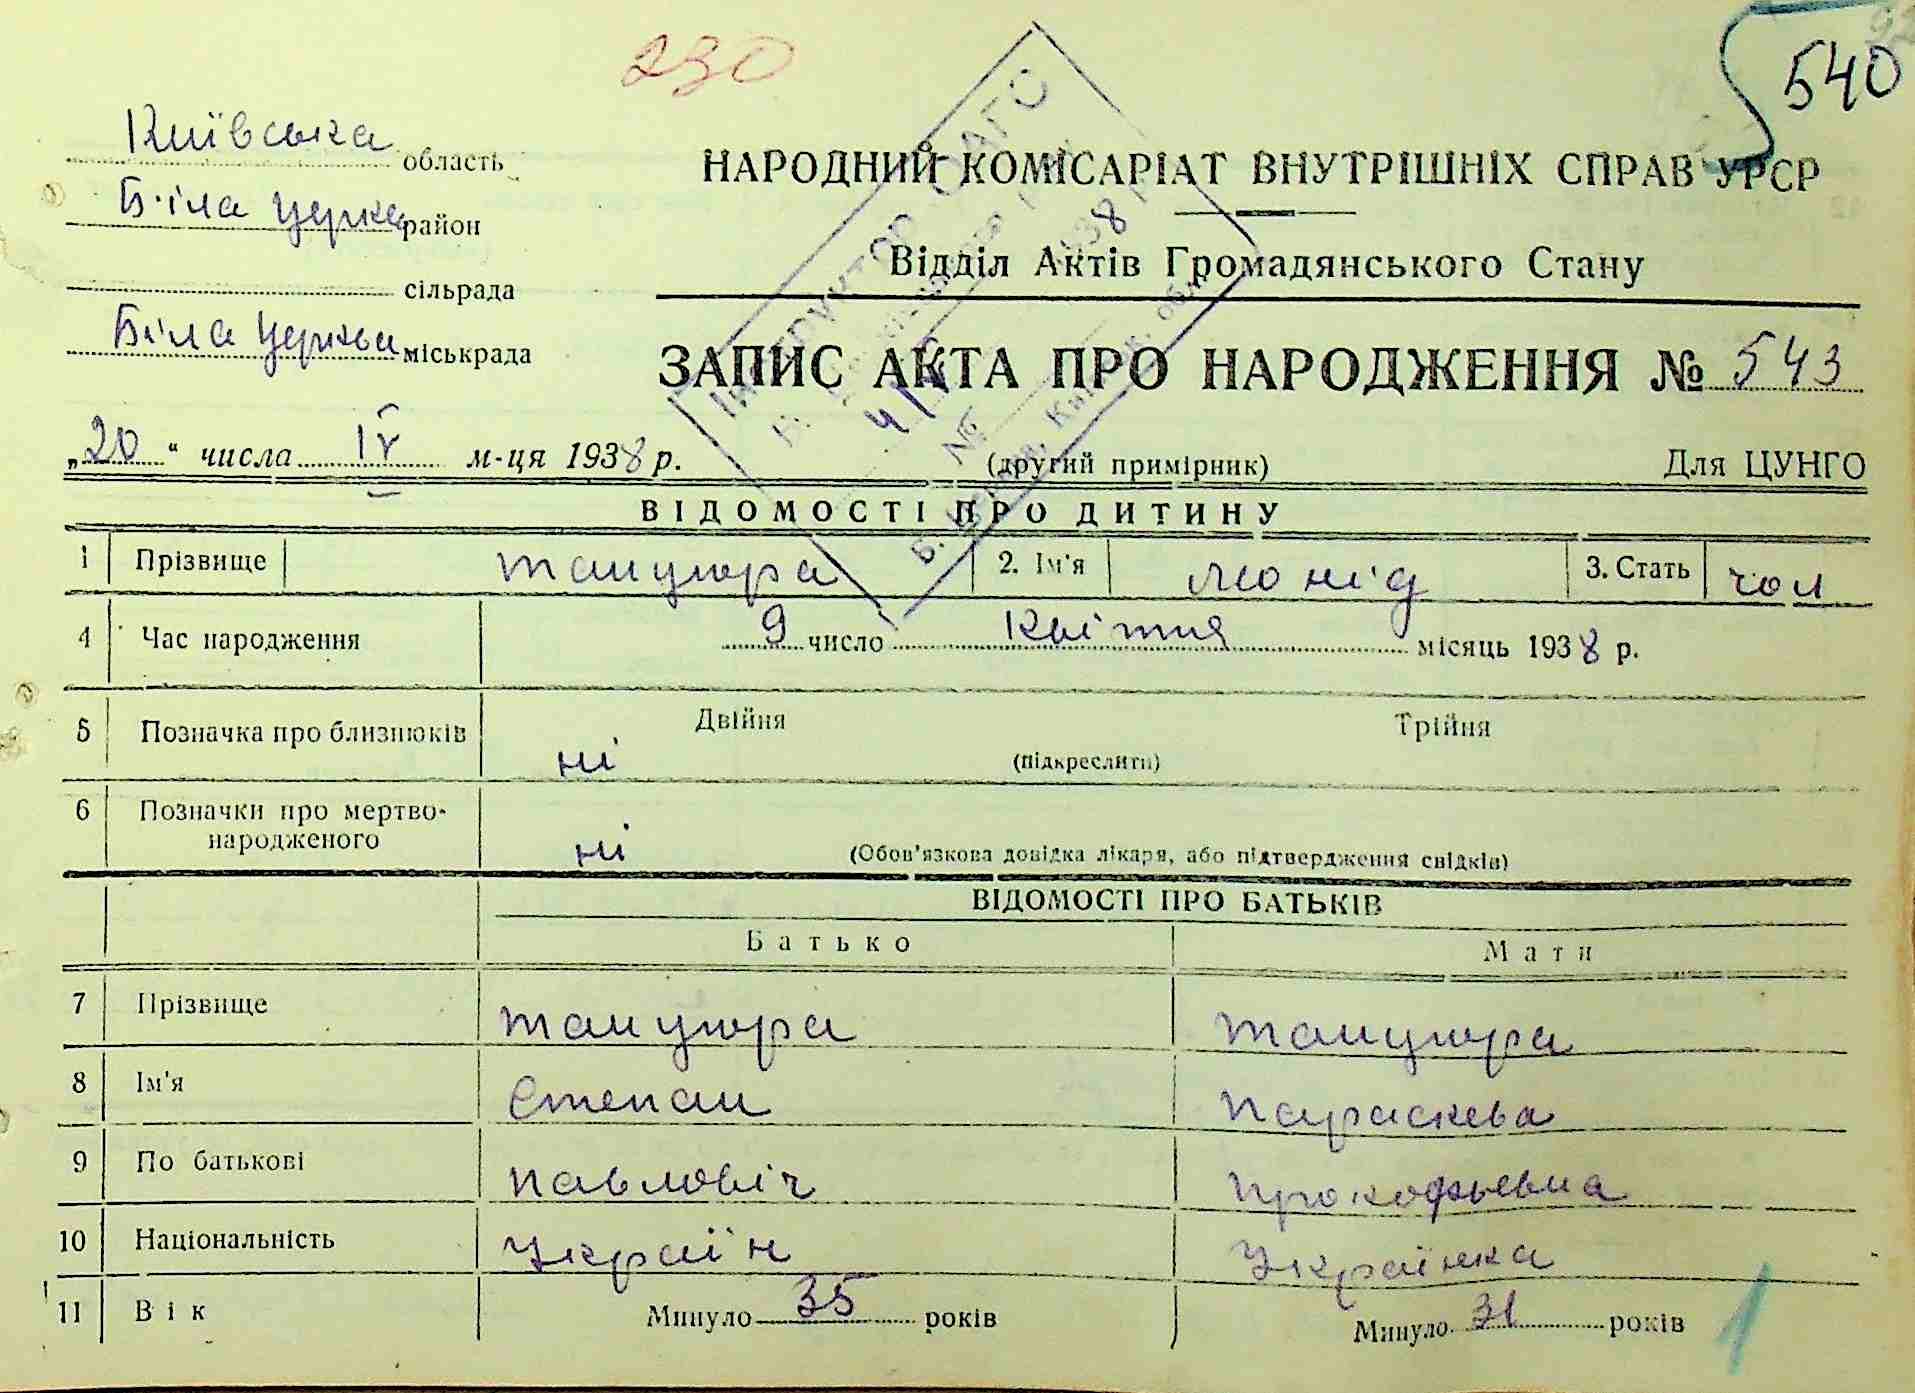 230
540
Київська область
Біла Церква район
сільрада
Біла Церкви міськрада
НАРОДНИЙ КОМІСАРІАТ ВНУТРІШНІХ СПРАВ УРСР
Відділ Актів Громадянського Стану
ЗАПИС АКТА ПРО НАРОДЖЕННЯ № 543
„20“ числа IV м-ця 1938 р.
(другий примірник)
Для ЦУНГО
Інструктор ЗАГС
1938 р.
№
ВІДОМОСТІ ПРО ДИТИНУ
1 Прізвище Танцюра 2. Ім'я Леонід 3. Стать чол
4 Час народження 9 число Квітня місяць 1938 р.
5 Позначка про близнюків ні Двійня Трійня
(підкреслити)
6 Позначки про мертво-
народженого ні (Обов'язкова довідка лікаря, або підтвердження свідків)
ВІДОМОСТІ ПРО БАТЬКІВ
Батько Мати
7 Прізвище Танцюра Танцюра
8 Ім'я Степан Параскева
9 По батькові Павловіч Прокофьевна
10 Національність Україн Українка
11 Вік Минуло 35 років Минуло 31 років
1